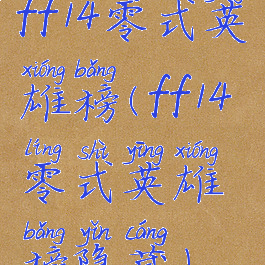 ff14零式英
xióng bǎng
雄榜(ff14
líng shì yīng xióng
零式英雄
bǎng yǐn cáng
榜隐藏)